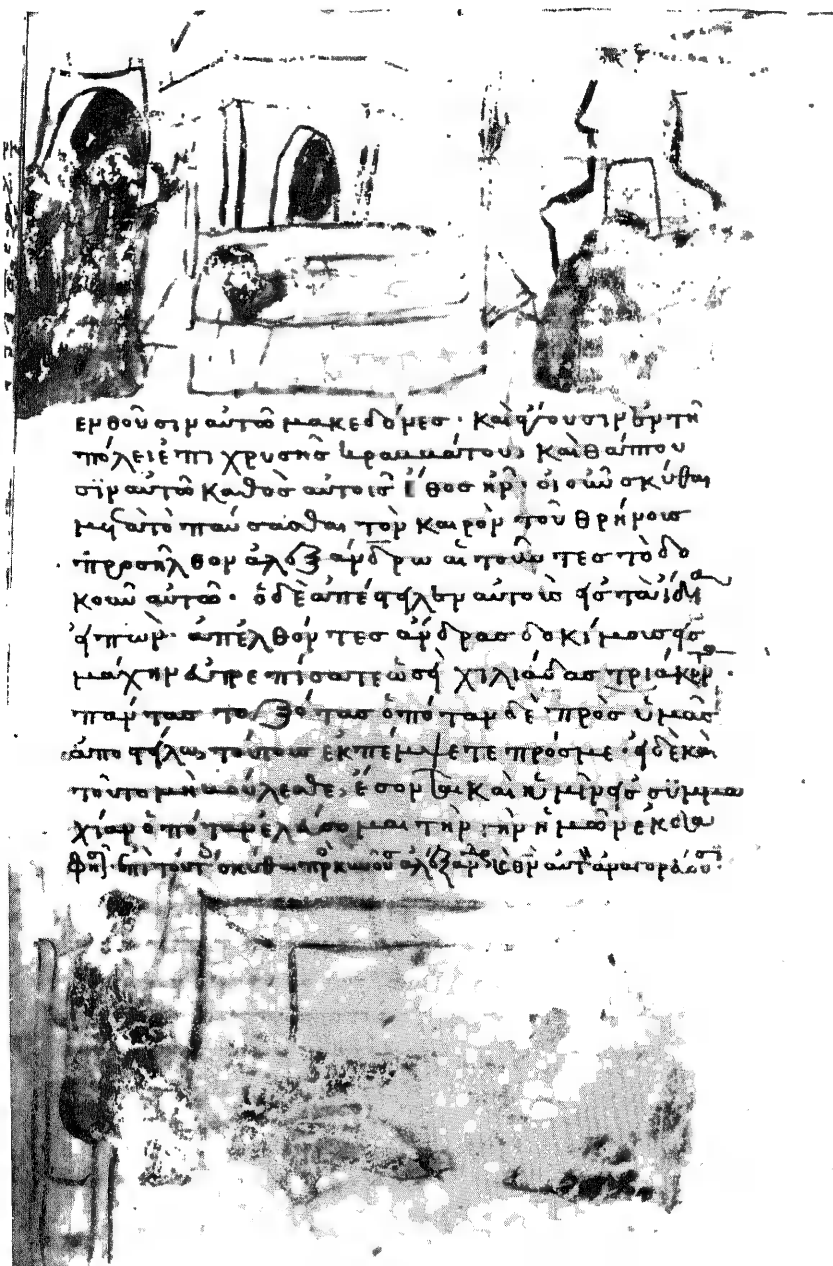 ενθοῦσιν αὐτῶ μακεδόνες · καὶ ἄγουσιν ἐν τῆ
πόλει ἐπι χρυσῆς κραμμάτου, καὶ θάπτου
σϊν αὐτῶ καθὸς αὐτοῖς ἔθος ἦν · οἱ οὖν σκύθαι
μὴ ἀπὸ παύσασθαι τὸν καιρὸν τοῦ θρήνοις
προσῆλθον ἀλεξάνδρω αἰτοῦντες τὸ δο
κοῦν αὐτῶ · ὁ δὲ ἀπέστηλεν αὐτοὺς εἰς τὰ ἴδια
εἰπὼν · ἀπέλθόντες ἄνδρας δοκίμοις εἰς
μάχην εὐπρεπίσατε ὡσεὶ χιλιάδας τριάκοντα ·
πάντας τοξότας ὁπόταν δὲ πρὸς ὑμᾶς
ἀποστήλω, τούτοις ἐκπέμψετε πρός με · εἰ δὲ καὶ
τοῦτο μὴ βούλεσθε, ἔσομαι καὶ ἡμῖν εἰς σύμμα
χίαν ὁπόταν ἐλάσομαι τὴν γὴν ἡμῶν ἐκεῖσαι